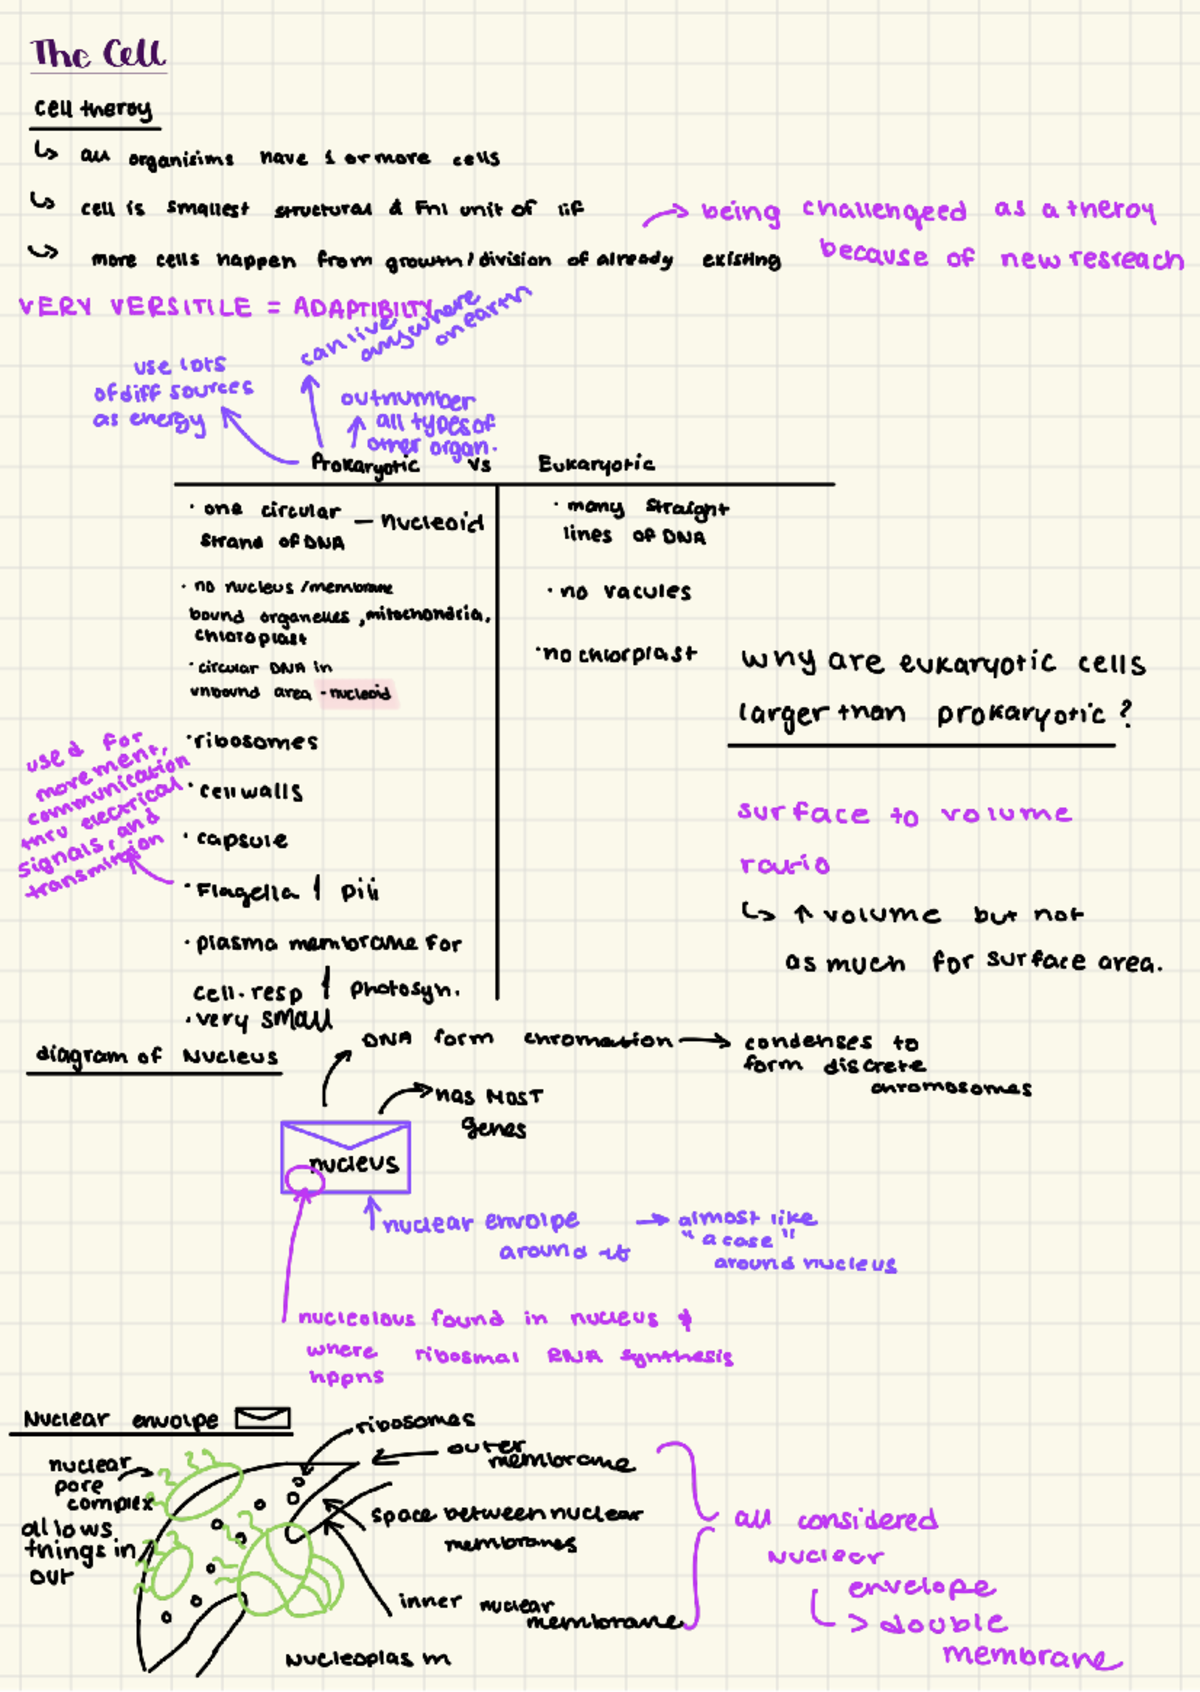 The Cell
cell theroy
↳ all organisims have 1 or more cells
↳ cell is smallest structural & Fnl unit of lif
→ being challengeed as a theroy
because of new resreach
↳ more cells happen from growth/division of already existing
VERY VERSITILE = ADAPTIBILTY
use lots
of diff sources
as energy
can live
anywhere
on earth
outnumber
all types of
other organ.
Prokaryotic vs Eukaryotic
· one circular — nucleoid
strand of DNA
· no nucleus/membrane
bound organelles, mitochondria,
chloroplast
· circular DNA in
unbound area - nucleoid
· ribosomes
· cell walls
· capsule
· Flagella / pili
used for
movement,
communication
thru electrical
signals, and
transmission
· plasma membrane for
cell. resp / photosyn.
· very small
· many straight
lines of DNA
· no vacules
· no chlorplast
why are eukaryotic cells
larger than prokaryotic?
surface to volume
ratio
↳ ↑ volume but not
as much for surface area.
diagram of Nucleus
DNA form chromation → condenses to
form discrete
chromosomes
→ has MOST
genes
nucleus
↑ nuclear envolpe → almost like
around it "a case"
around nucleus
nucleolous found in nucleus &
where ribosmal RNA synthesis
hppns
Nuclear envolpe
nuclear
pore
complex
allows
things in
out
ribosomes
outer
membrane
space between nuclear
membranes
inner nuclear
membrane
Nucleoplasm
all considered
nuclear
envelope
↳ double
membrane